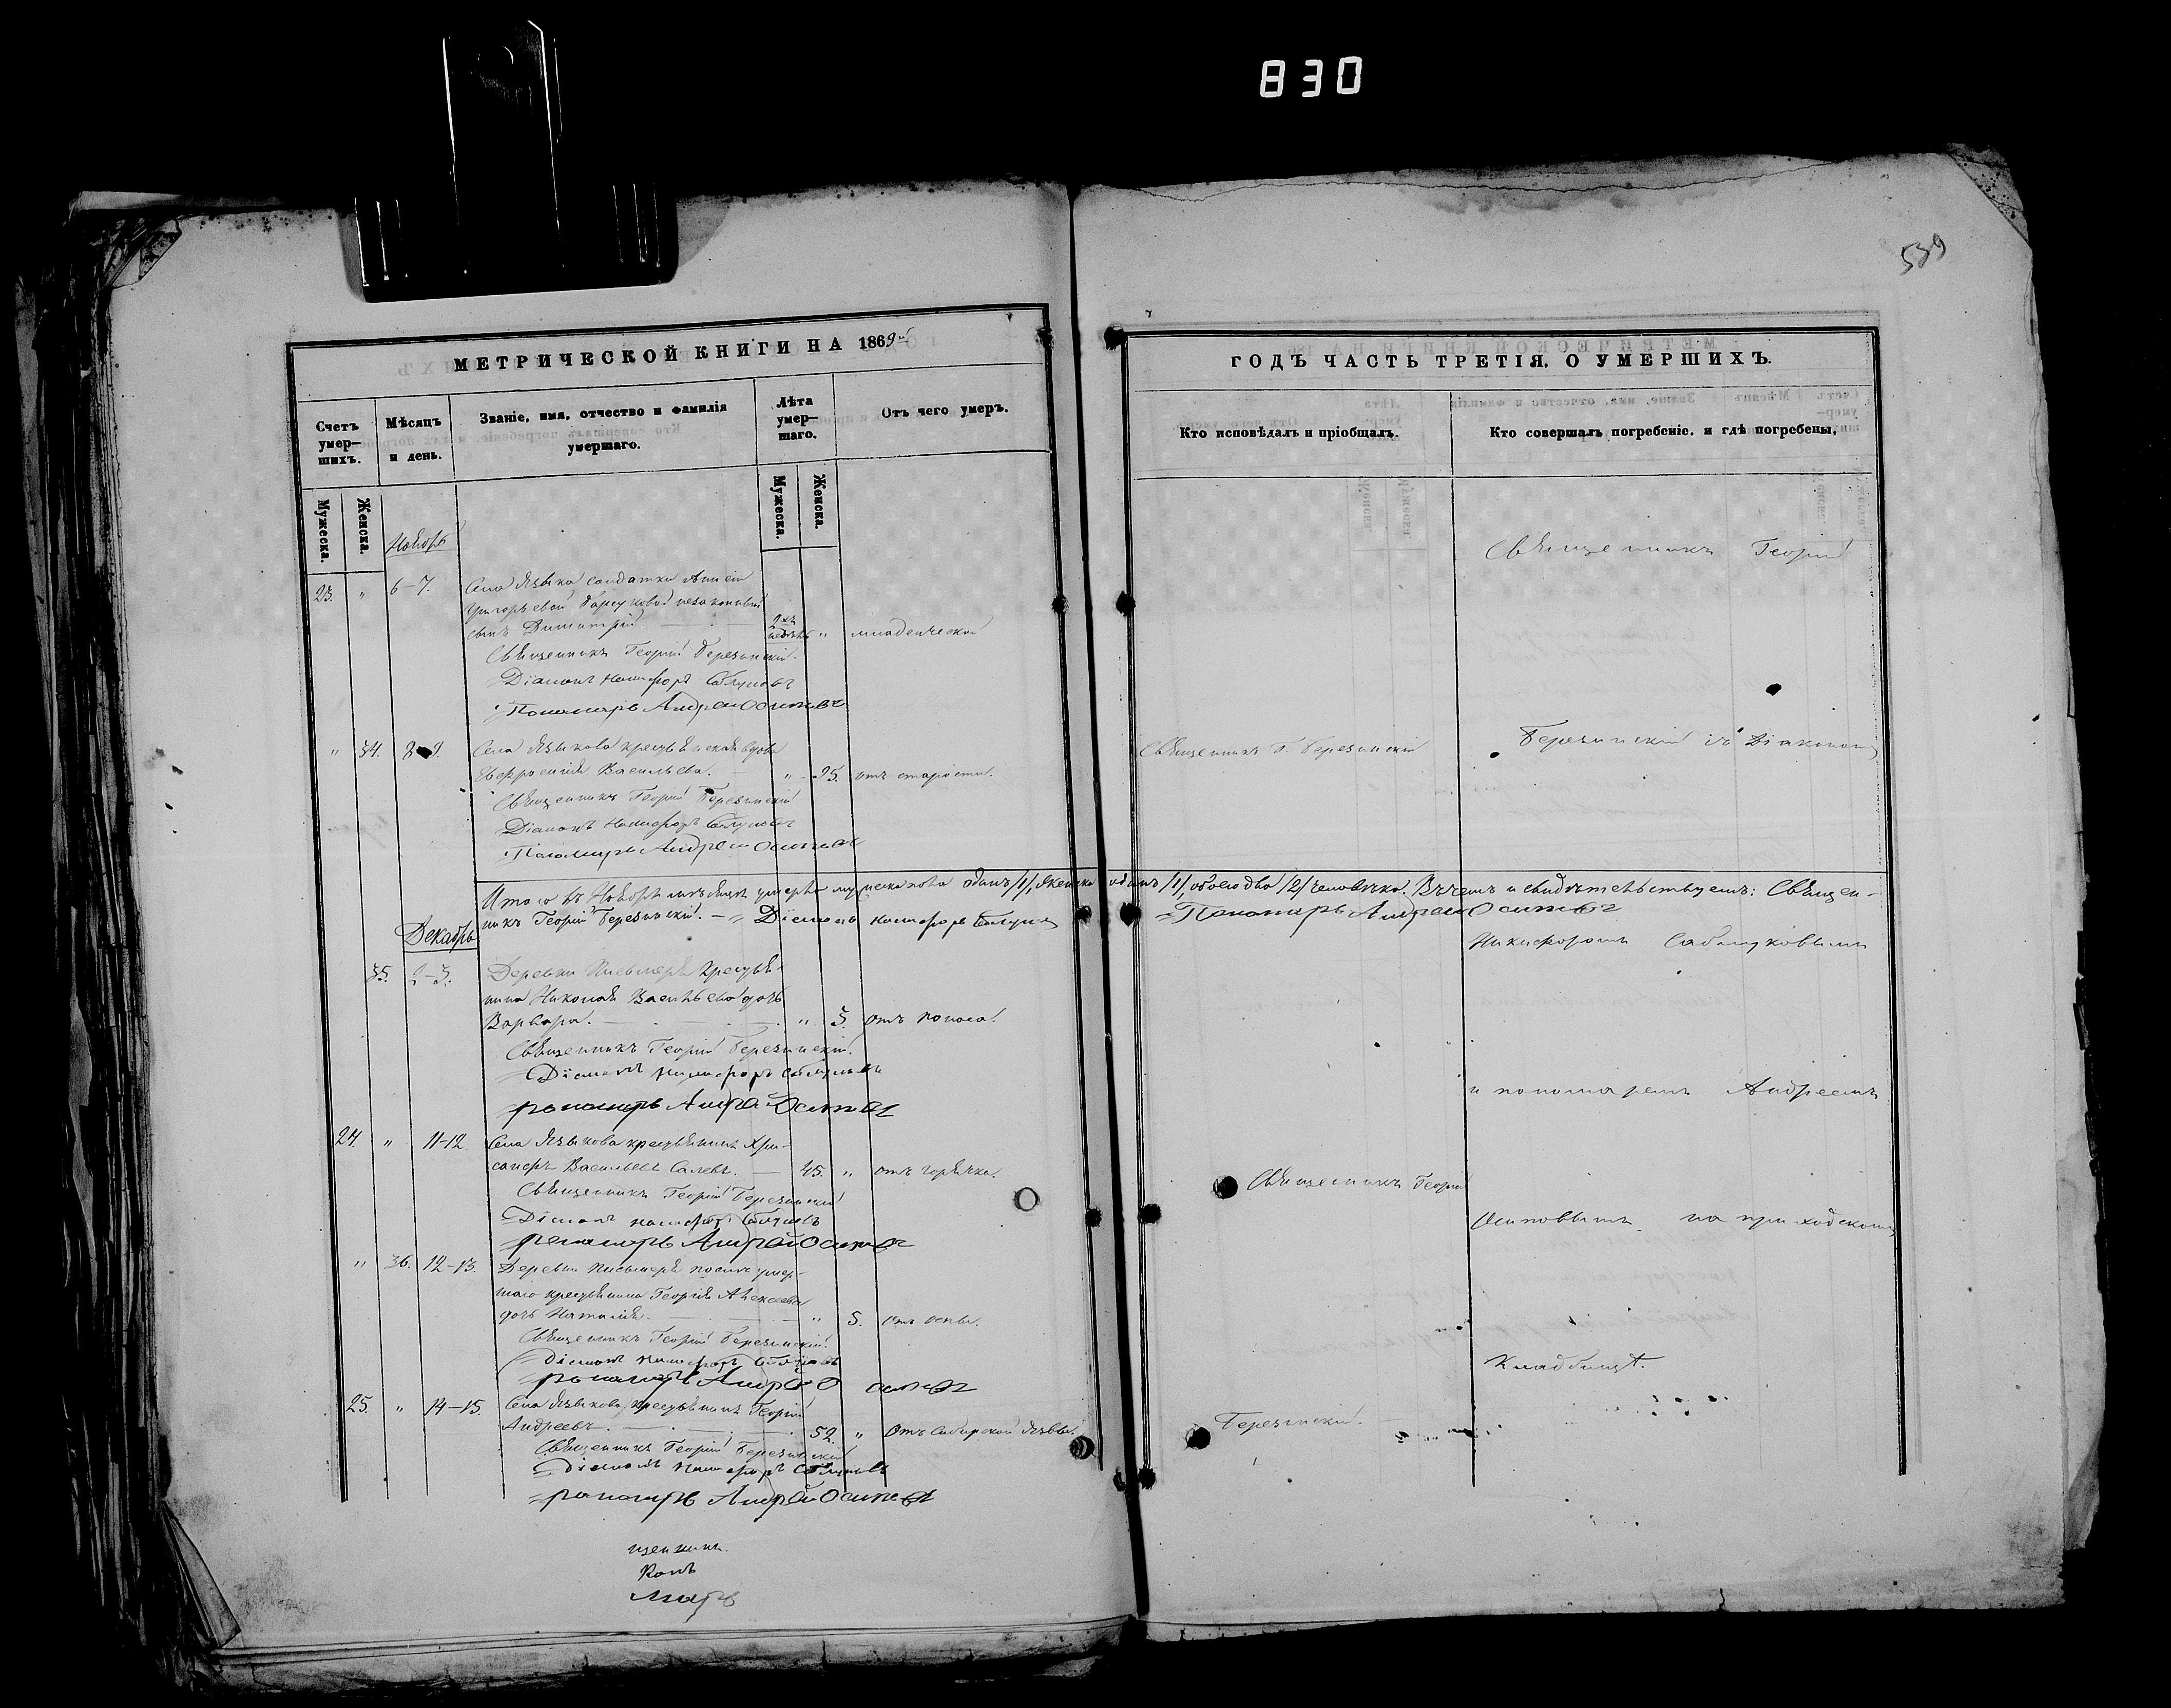 830
539
МЕТРИЧЕСКОЙ КНИГИ НА 1869й
Счетъ умер-шихъ.
Мѣсяцъ и день.
Званіе, имя, отчество и фамилія умершаго.
Лѣта умер-шаго.
Отъ чего умеръ.
Мужеска.
Женска.
Мужеска.
Женска.
Ноябрь
23. " 6-7. Села Языкова солдатки
Григорьевой незаконный
сынъ Димитрій 2хъ недѣль " младенческой
Священникъ Георгій Березинскій.
Діаконъ Никифоръ Саблуковъ
Пономарь Андрей Осиповъ
" 34. 8-9. Села Языкова крестьянская вдова
Евфросинія Васильева. " 95. отъ старости.
Священникъ Георгій Березинскій
Діаконъ Никифоръ Саблуковъ
Пономарь Андрей Осиповъ
Итого въ Ноябрѣ мѣсяцѣ умерло мужеска пола одинъ /1/, женска одинъ /1/, обоего два /2/ человѣка. Въ чемъ и свидѣтельствуемъ: Священ-
никъ Георгій Березинскій. Діаконъ Никифоръ Саблуковъ Пономарь Андрей Осиповъ
Декабрь
35. 2-3. Деревни Письмеря крестья-
нина Николая Васильева дочь
Варвара. " 3. отъ поноса.
Священникъ Георгій Березинскій.
Діаконъ Никифоръ Саблуковъ
пономарь Андрей Осиповъ
24. " 11-12. Села Языкова крестьянинъ Хри-
санфъ Васильевъ 45. " отъ горячки.
Священникъ Георгій Березинскій
Діаконъ Никифоръ Саблуковъ
пономарь Андрей Осиповъ
" 36. 12-13. Деревни Письмеря послѣ умер-
шаго крестьянина Георгія Алексѣева
дочь Наталія. " 5. отъ оспы.
Священникъ Георгій Березинскій.
Діаконъ Никифоръ Саблуковъ
пономарь Андрей Осиповъ
25. " 14-15. Села Языкова крестьянинъ Георгій
Андреевъ. 52. " Отъ Сибирской язвы.
Священникъ Георгій Березинскій
Діаконъ Никифоръ Саблуковъ
пономарь Андрей Осиповъ
щенникъ
конъ
марь
ГОДЪ ЧАСТЬ ТРЕТІЯ, О УМЕРШИХЪ.
Кто исповѣдалъ и пріобщалъ.
Кто совершалъ погребеніе, и гдѣ погребены,
Священникъ Георгій
Священникъ Г. Березинскій
Березинскій съ Діакономъ
Никифоромъ Саблуковымъ
и пономаремъ Андреемъ
Священникъ Георгій
Осиповымъ на приходскомъ
кладбищѣ.
Березинскій.